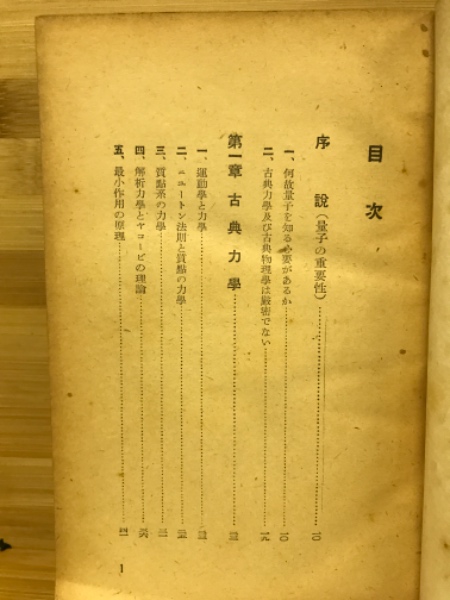 目次
序説(量子の重要性)……一〇
一、何故量子を知る必要があるか……一〇
二、古典力學及び古典物理學は嚴密でない……一九
第一章 古典力學
一、運動學と力學
二、ニュートン法則と質點の力學
三、質點系の力學
四、解析力學とヤコービの理論
五、最小作用の原理
1